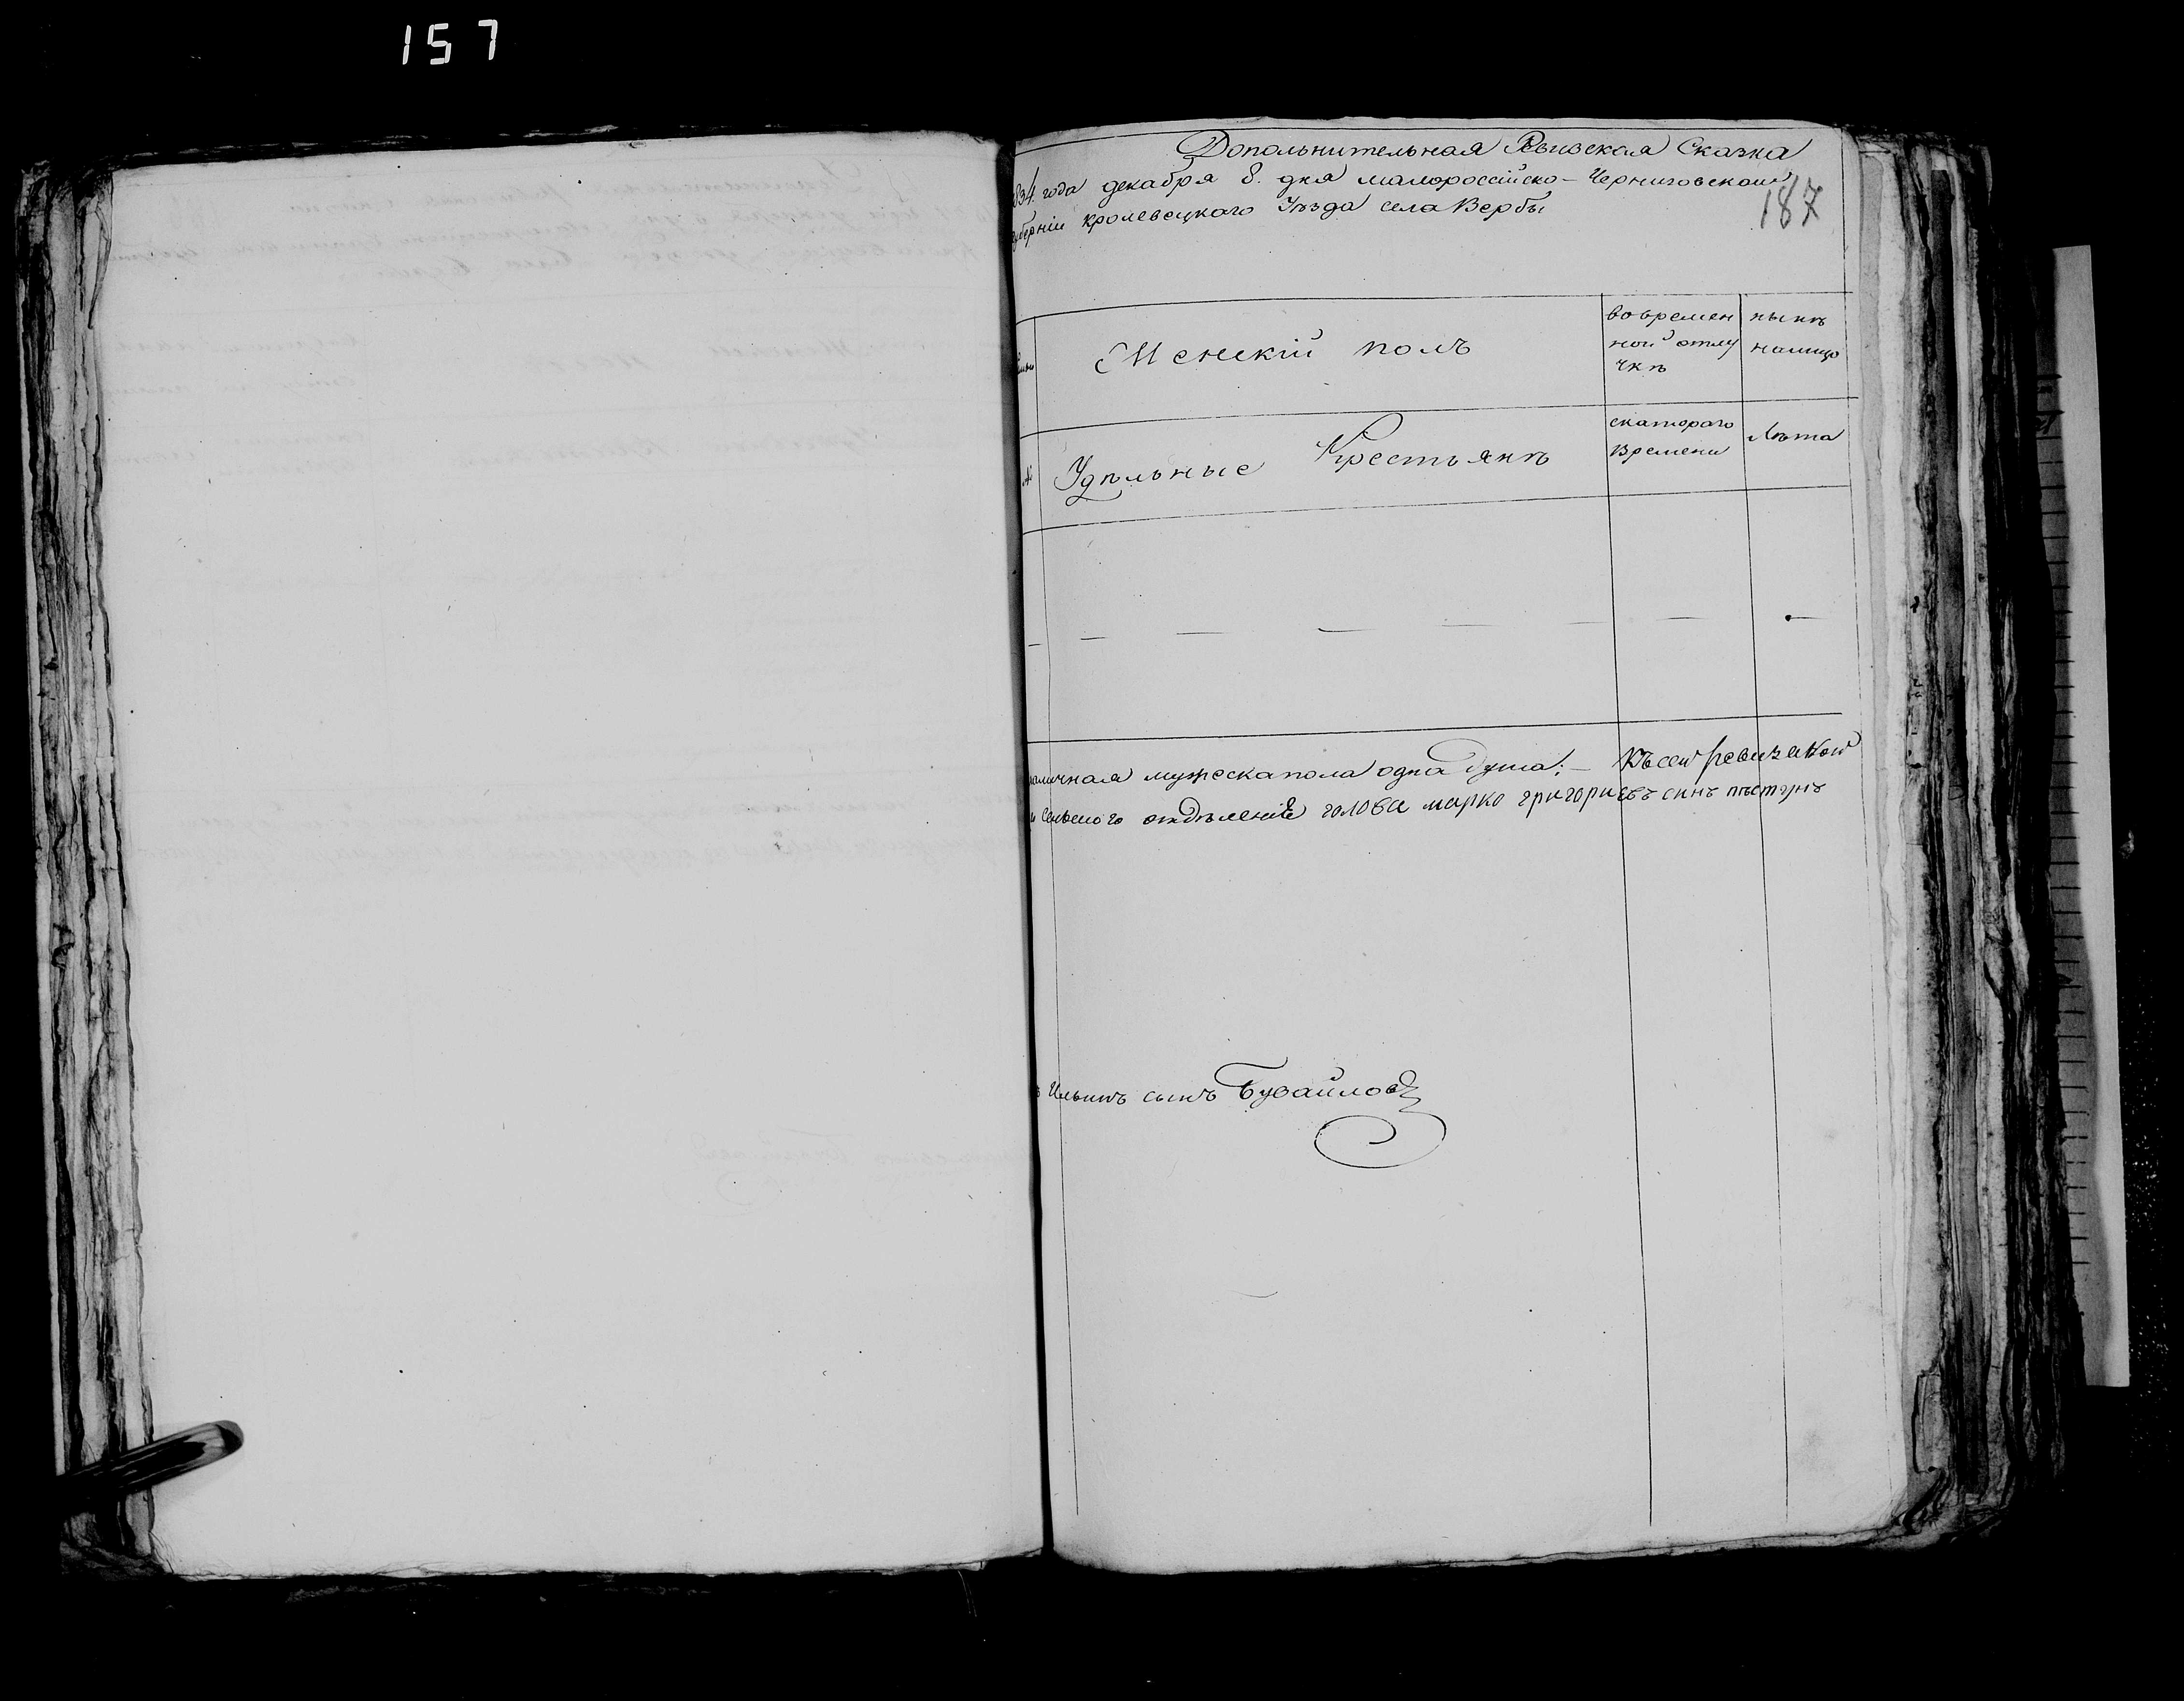 157
Дополнительная Ревизская Сказка
834. года декабря 8. дня малороссійско-Черниговской
губерніи кролевецкаго Уѣзда села Вербы
187
Женскій полъ
вовремен
ной отлу
чкѣ
нынѣ
налицо
№
Удѣльные Крестьянѣ
скатораго
Времени
Лѣта
— — — — — — —
наличная мужеска пола одна душа; — Къ сей ревизской
сельского отдѣленіе голова марко григориевъ синъ
Ильинъ сынъ Бувайловъ